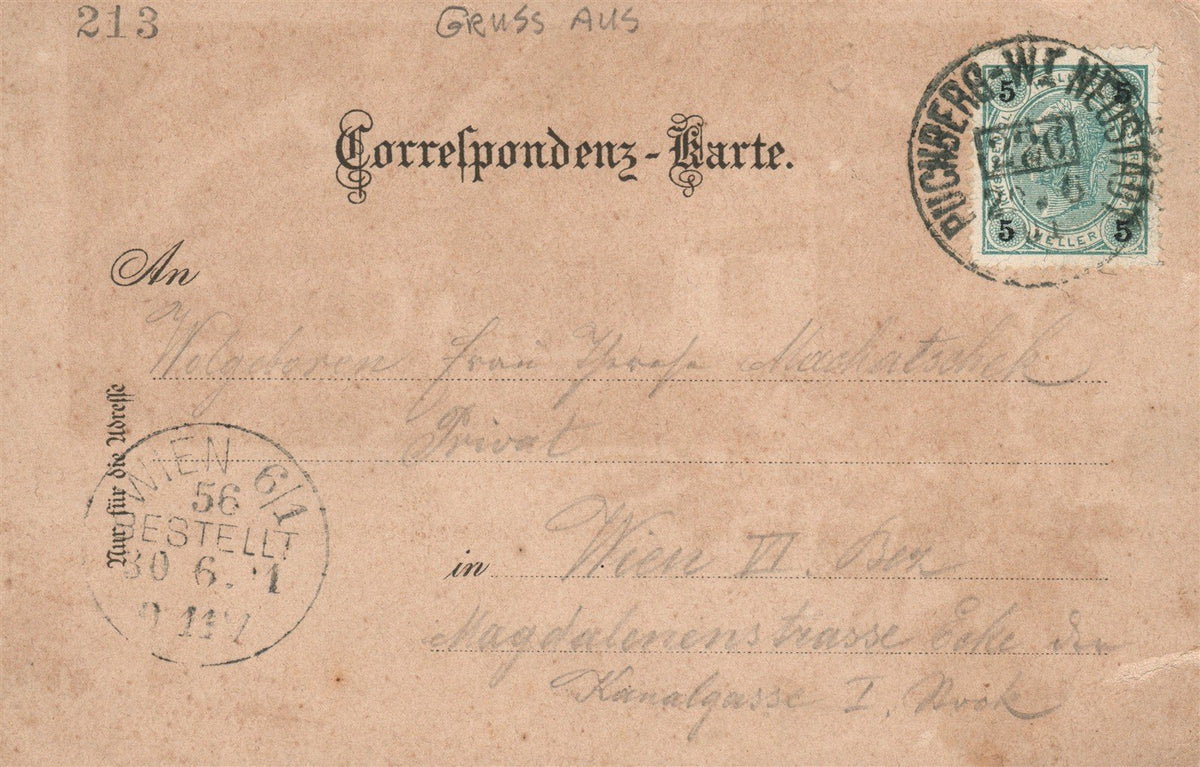 213
GRUSS AUS
Correspondenz-Karte.
PUCHBERG-WR NEUSTADT
5 5
5 HELLER 5
An
Wolgeboren Frau Therese Machatschek
Privat
Nur für die Adresse
WIEN 6/1
56
BESTELLT
30 6. 1
in Wien VI. Bez
Magdalenenstrasse Ecke der
Kanalgasse I. Stock